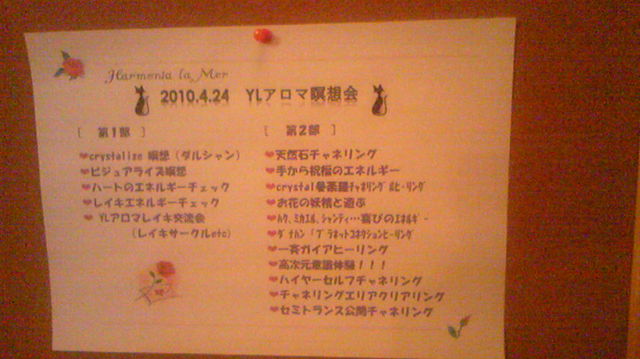 Harmonia la Mer
2010.4.24 YLアロマ瞑想会
[ 第1部 ]
❤crystalize 瞑想（ダルシャン）
❤ビジュアライズ瞑想
❤ハートのエネルギーチェック
❤レイキエネルギーチェック
❤ YLアロマレイキ交流会
（レイキサークルetc）
[ 第2部 ]
❤天然石チャネリング
❤手から祝福のエネルギー
❤crystal曼荼羅チャネリング
❤お花の妖精と遊ぶ
ミカエル、シャンティ…喜びのエネルギー
❤一斉ガイアヒーリング
❤高次元意識体験！！！
❤ハイヤーセルフチャネリング
❤チャネリングエリアクリアリング
❤セミトランス公開チャネリング